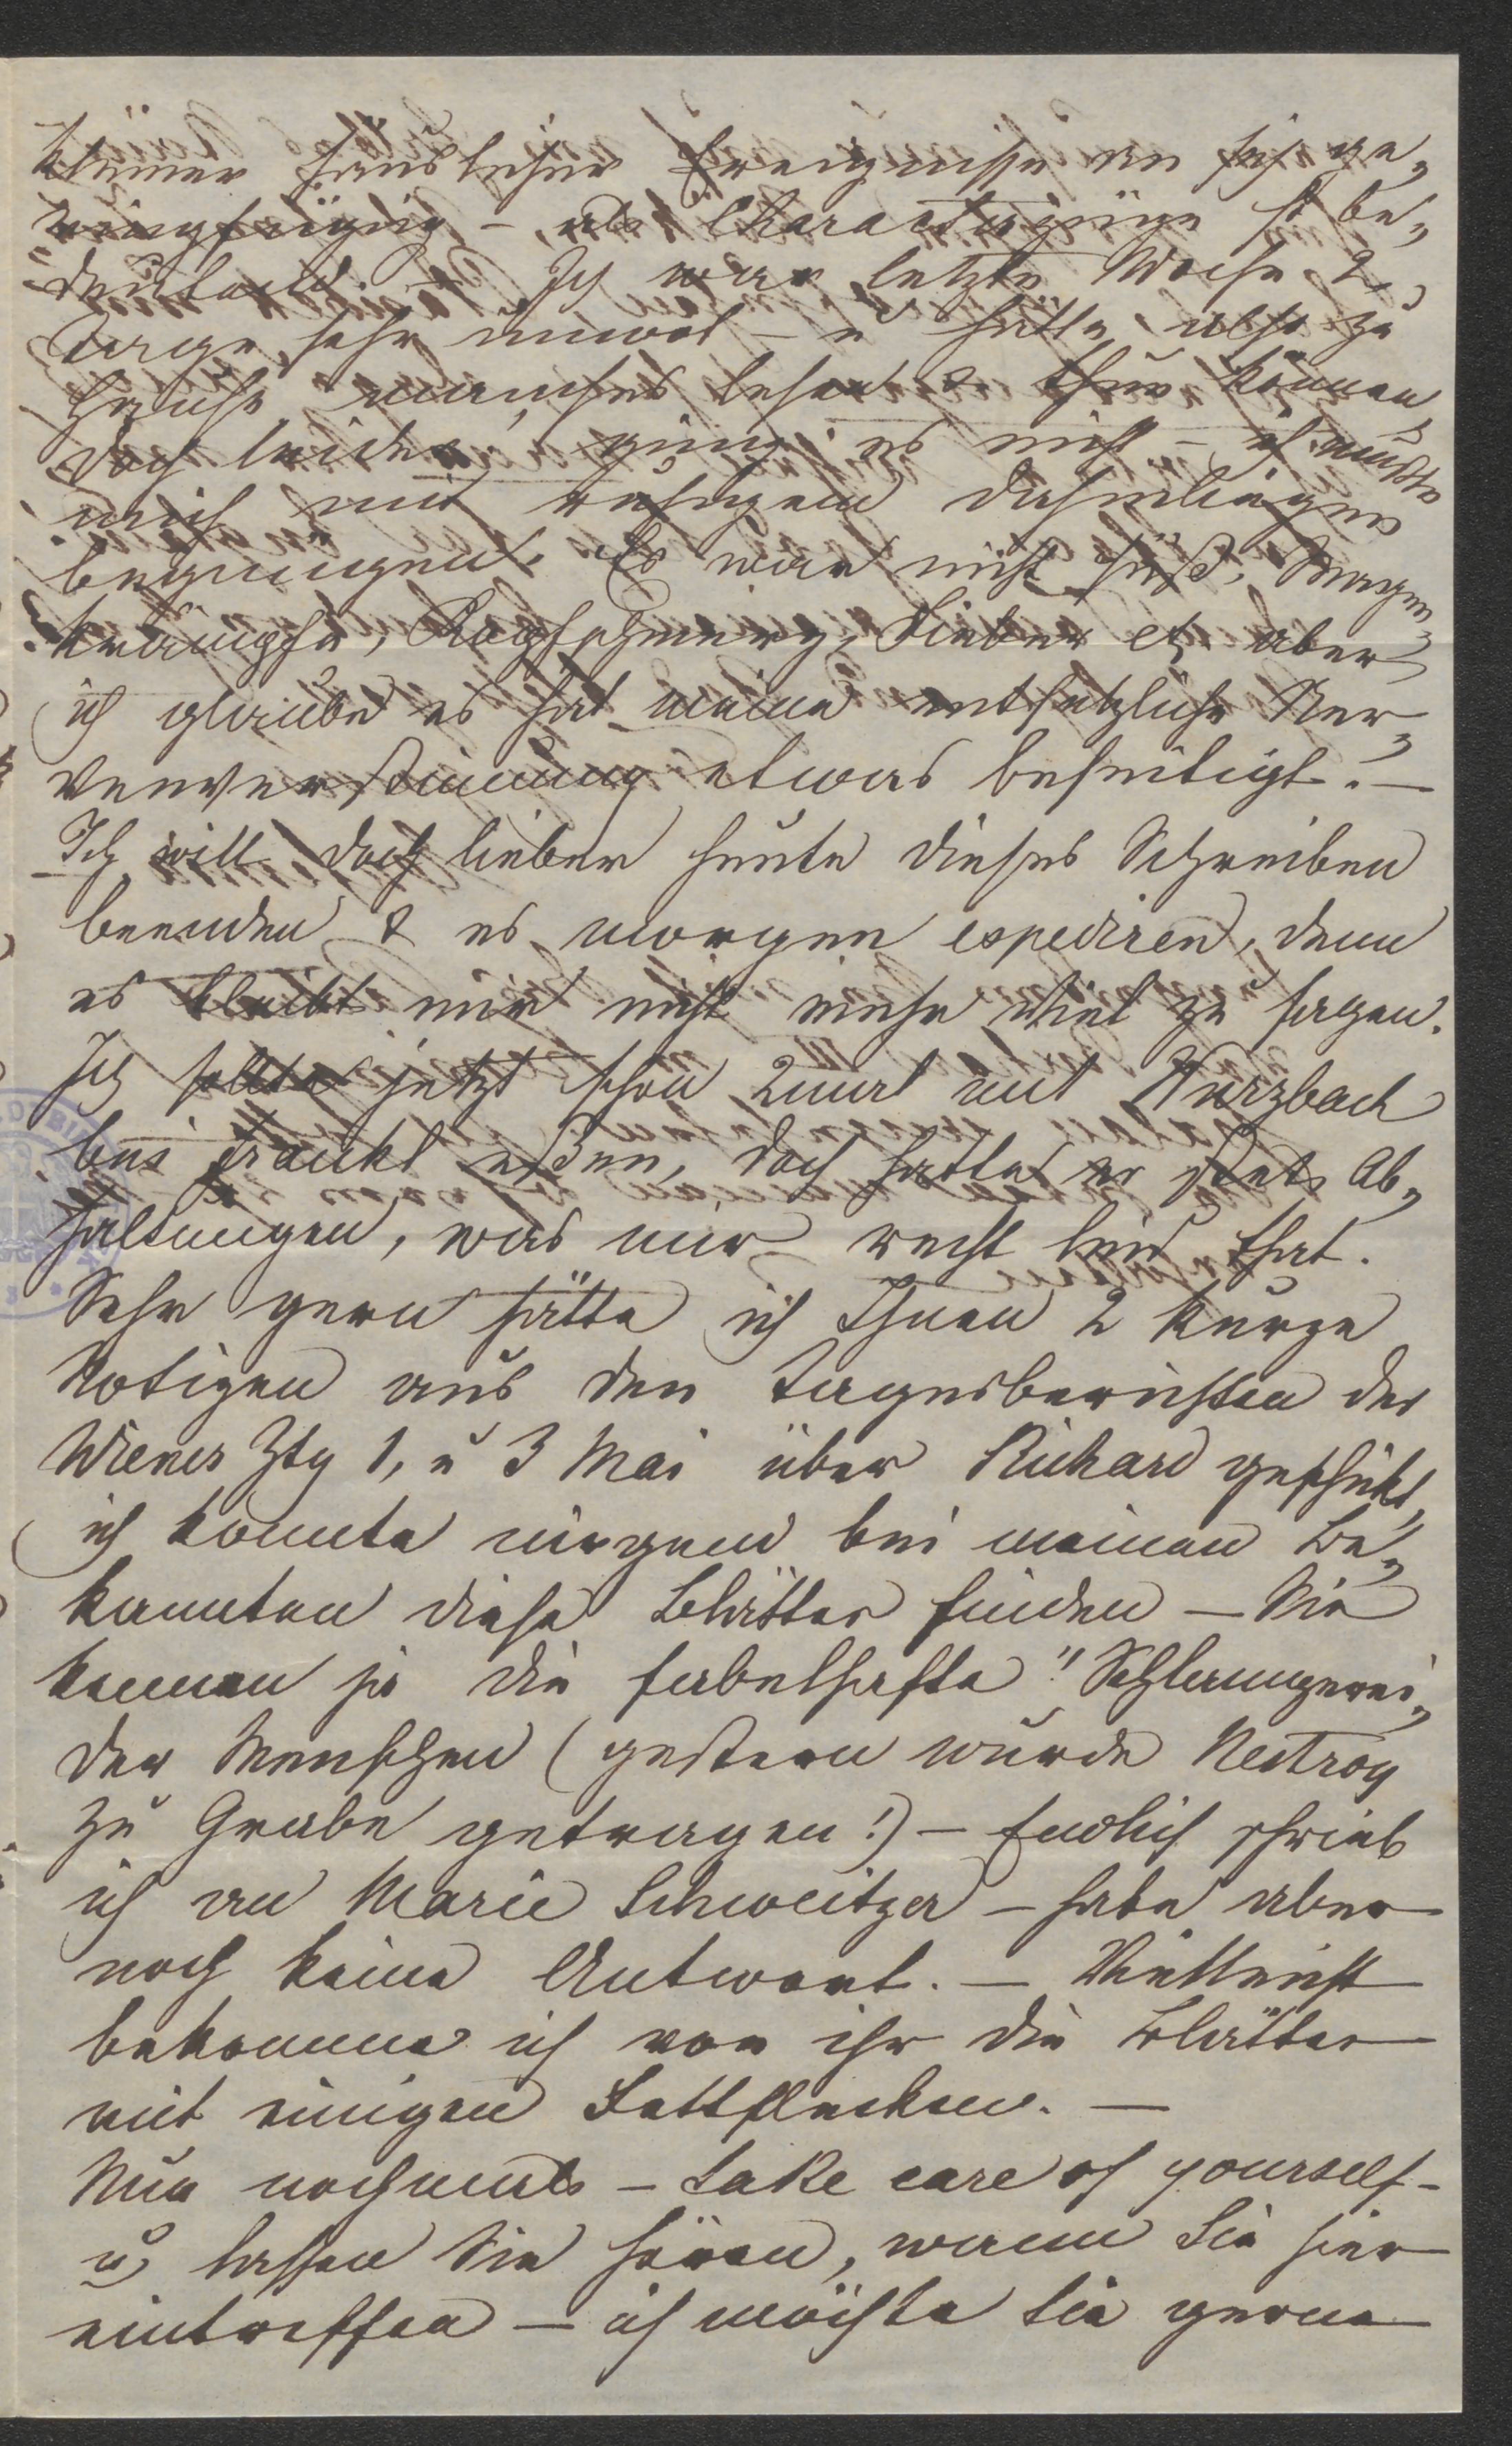 kleiner häuslicher Ereignisse an sich ge„
ringfügig – als Characterzüge so be„
deutend. – Ich war letzte Woche 2
Tage sehr unwol – u hätte also zu
Hause manches lesen & thun können
doch leider ging es nicht – ich mußte
mich mit ruhigem Dahinliegen
begnügen. Es war nicht süß, Magen„
krämpfe, Kopfschmerz, Fieber etz aber
ich glaube es hat meine entsetzliche Ner„
venverstimmung etwas beseitigt. –
Ich will doch lieber heute dieses Schreiben
beenden & es morgen expediren, denn
es bleibt mir nicht mehr viel zu sagen.
Ich sollte jetzt schon 2mal mit Wurzbach
bei Frankl eßen, doch hatte er stets Ab„
haltungen, was mir recht leid that.
Sehr gern hätte ich Ihnen 2 kurze
Notizen aus den Tagesberichten der
Wiener Ztg 1, u 3 Mai über Richard geschickt,
ich konnte nirgend bei meinen Be„
kannten diese Blätter finden – Sie
kennen ja die fabelhafte "Schlamperei„
der Menschen (gestern wurde Nestroy
zu Grabe getragen!) – Endlich schrieb
ich an Marie Schweitzer – habe aber
noch keine Antwort. – Vielleicht
bekomme ich von ihr die Blätter
mit einigen Fettflecken. –
Nun nochmals – take care of yourself –
u lassen Sie hören, wann Sie hier
eintreffen – ich möchte Sie gerne